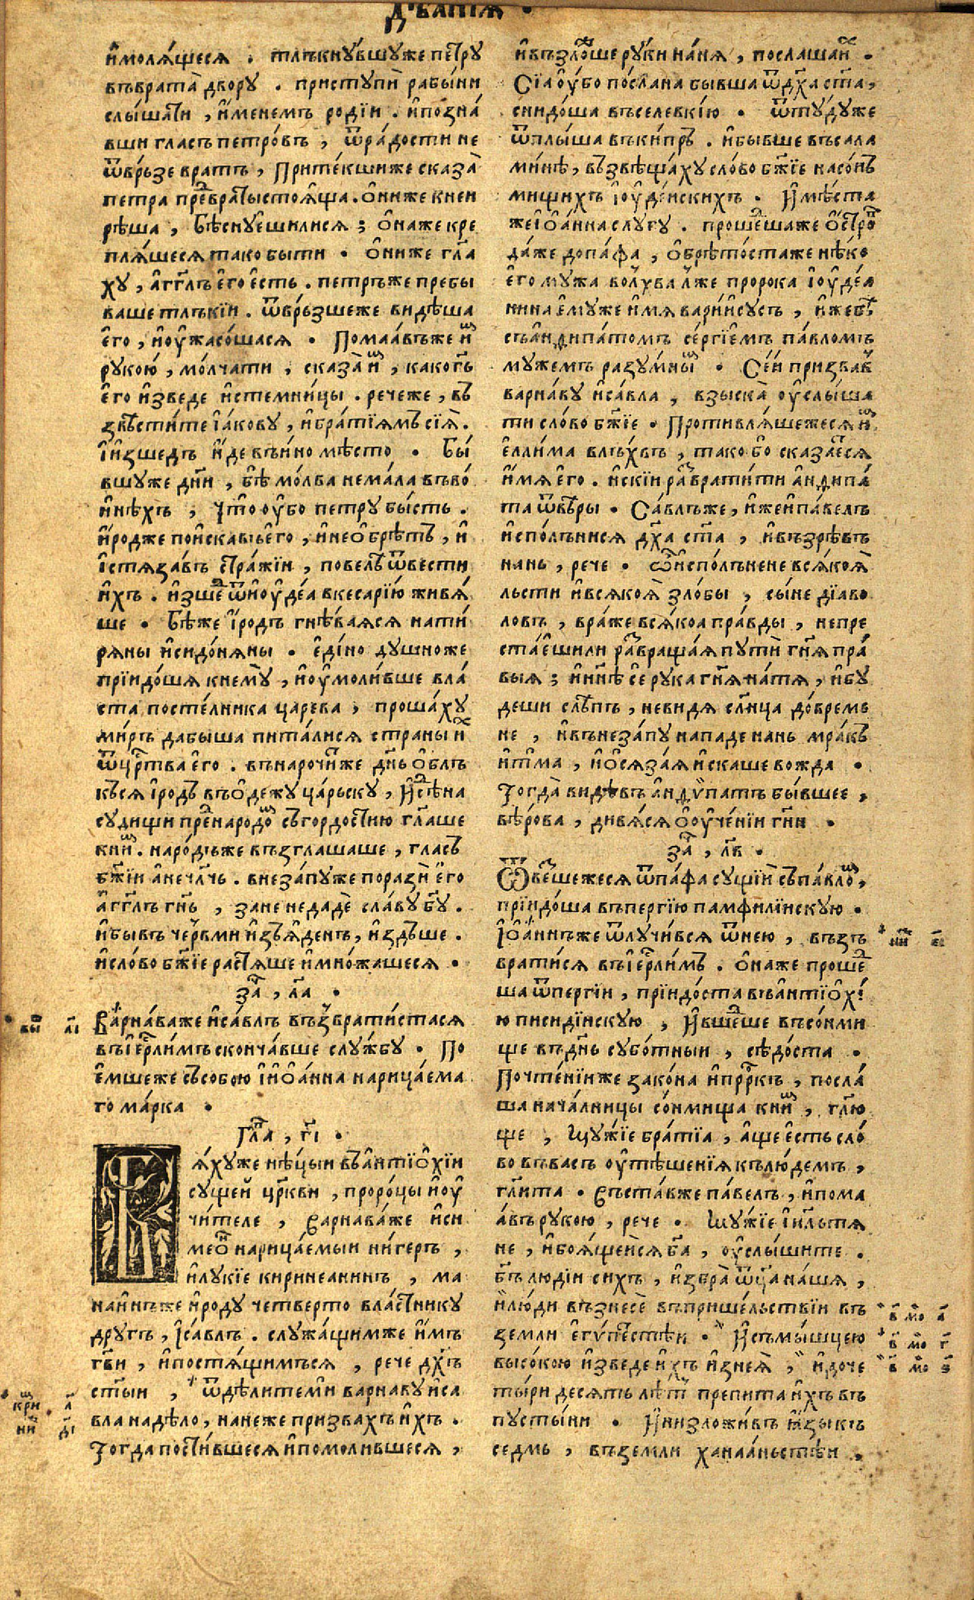 дѣанїѧ .
и҆молѧ́щесѧ . тлъкнꙋ́вшꙋже петрꙋ
въврата̀ дворꙋ . пристꙋпѝ рабы́ни
слы́шати , и҆́менемъ родїи . и҆позна́
вши гласъ петро́въ , ѿра́дости не
ѿвръ́зе вратъ , притекшиже сказа̀
петра пре́двраты стоѧ́ща . ѻ҆ниже кней
рѣша , бѣснꙋ́ешилисѧ ; ѻ҆наже крѣ
плѧ́шесѧ тако быти . ѻ҆ниже гл҃а
хꙋ , а҆гг҃лъ є҆го є҆сть . петръже пребы
ваше тлъкїи . ѿвръ́зшеже видѣша
є҆го , и҆ѹ҆жасо́шасѧ . Помаа́въже и҆мъ
рꙋкою , мо́лчати , сказа̀ и҆мъ , какогь
є҆го и҆зведе и҆стемни́цы . речеже , въ
звѣсти́те і҆а́ковꙋ , и҆бра́тїѧмъ сїѧ̀ .
И҆и҆зшедъ и҆́де въи́но мѣсто . Бы́
вшꙋже дн҃и , бѣ мо́лва немала въво́
и҆нѣхъ , что ѹ҆бо петрꙋ бы́сть .
и҆́родже пои҆ска́въ є҆го , и҆неѻ҆брѣ́тъ , и҆
і҆стѧза́въ стра́жїи , повелѣ ѿвести
и҆́хъ . и҆зшедъ ѿи҆ѹ҆де́а вкесарі́ю живѧ́
ше . Бѣ́же і҆́родъ гнѣ́ваѧсѧ нати
рѧны и҆сидо́нѧны . є҆ди́но дꙋшноже
прїидо́шѧ кнемꙋ̀ , и҆ѹ҆моли́вше вла́
ста посте́лника царева , прошахꙋ
ми́ръ дабы́ша пита́лисѧ страны и҆хъ
ѿца́рства є҆го . внарочи́же днь ѻ҆блъ
къ́сѧ і҆́родъ въѻ҆де́ждꙋ ца́рьскꙋ , и҆сѣд на
сꙋдищи пренаро́домъ съго́рдостїю гл҃аше
кни́мъ . наро́дъже възглашаше , гласъ
бж҃їи а҆нечл҃чь . внеза́пꙋже поразѝ є҆го
а҆гг҃лъ гн҃ь , зане недадѐ сла́вꙋ бг҃ꙋ .
и҆бывъ червми и҆з̾ѧ́денъ , и҆здъше .
и҆сло́во бж҃їе растѧше и҆мно́жашесѧ .
за҃ , л҃а .
Варна́важе и҆са́влъ възврати́стасѧ
въі҆ерⷭ҇ли́мъ сконча́вше слꙋ́жбꙋ . По
є҆мшеже съсобою і҆ѻ҆а́нна нарица́ема
го марка .
Гл҃а , г҃і .
Бѧ́хꙋже нѣцыи въа҆нтїѻ҆хїи
сꙋщей цр҃кви , проро́цы и҆ѹ҆
чи́теле , варнава́же и҆си
меѻ҆нъ нарица́емыи ни́геръ ,
и҆лꙋкїе киринеанинъ , ма
наи́лъже и҆́родꙋ четверто власти́никꙋ
дрꙋгъ , і҆са́влъ . слꙋжа́щимже и҆́мъ
гв҃и , и҆постѧ́щимъсѧ , рече дх҃ъ
ст҃ы́и , ѿдѣлитемѝ варна́вꙋ и҆са
вла надѣло , нанеже призва́хъ и҆́хъ .
Тогда пости́вшесѧ и҆помоли́вшесѧ ,
и҆възло́жше рꙋки на́нѧ , послаша и҆хъ .
Сі́а ѹ҆́бо по́слана бы́вша ѿдх҃а ст҃а ,
снидо́ша въселевкі́ю . ѿтꙋ́дꙋже
ѿплы́ша въки́пръ . и҆бывше въсала
ми́нѣ , възвѣща́хꙋ сло́во бж҃їе насо́нъ
мищихъ і҆ѹ҆де́искихъ . и҆мѣ́ста
жеі҆ѻ҆а́нна слꙋгꙋ . проше́дшаже ѻ҆́стровъ
да́же допа́фа , ѻ҆брѣто́стаже нѣ́ко
є҆го мꙋ́жа волхва лже пророка і҆ѹ҆де́а
нина є҆мꙋже и҆́мѧ варїи҆сꙋсъ , и҆́жебѣ
съа҆ндипа́томъ се́ргїемъ па́вломъ
мꙋ́жемъ разꙋ́мнымъ . Се́й призвавъ
варна́вꙋ и҆са́вла , взыска̀ ѹ҆слы́ша
ти сло́во бж҃їе . Противлѧ́шежесѧ и҆мъ
є҆лли́ма влъ́хвъ , тако бо сказа́етсѧ
и҆́мѧ є҆го . и҆скїи развратити а҆ндипа
та ѿвѣ́ры . Са́влъже , и҆́жеи҆па́велъ
и҆спо́лънисѧ дх҃а ст҃а , и҆възрѣ́въ
нань , рече . ѽи҆спо́лънене всѧ́коѧ̀
льсти и҆всѧ́коѧ̀ зло́бы , сы́не дїаво
ловъ , вра́же всѧ́коа пра́вды , непре
ста́ешили развраща́ѧ пꙋти̇̀ гн҃ѧ пра́
выѧ ; и҆нн҃ѣ се рꙋка гн҃ѧ на́тѧ , и҆бꙋ
деши слѣпъ , невидѧ сл҃нца до́време
не , и҆внеза́пꙋ нападе нань мра́къ
и҆тма , и҆ѻ҆сѧза́ѧ и҆скаше вожда .
Тогда̀ видѣвъ а҆ндѵ́патъ бы́вшее ,
вѣ́рова , дивѧ́сѧ ѻ҆ѹ҆че́нїи гн҃и .
за҃ , л҃в .
Ѿве́зшежесѧ ѿпа́фа сꙋщїи съпа́вломъ ,
прїидо́ша въпергі́ю памфили́искꙋю .
І҆ѻ҆а́ннъже ѿлꙋчи́всѧ ѿнею , възъ
вратисѧ въі҆ерⷭ҇ли́мъ . ѻ҆наже проше́д
ша ѿпергіи , прїидо́ста въа҆нтїѻ҆хі́
ю писиді́искꙋю , и҆вше́дше въсо́нми
ще въднь сꙋбо́тныи , сѣдо́ста .
Почте́нїиже зако́на и҆прⷪ҇ркъ , посла́
ша нача́лницы со́нмища кни́мъ , гл҃ю
ще , Мꙋ́жїе бра́тїа , а҆́ще є҆сть сло́
во въва́съ ѹ҆тѣше́нїѧ къ лю́демъ ,
гл҃ита . въста́вже па́велъ , и҆пома
а́въ рꙋкою , рече . Мꙋ́жїе і҆и҃льтѧ
не , и҆боѧ́щеисѧ бг҃а , ѹ҆слы́шите .
бг҃ъ лю́дїи сихъ , и҆збра̀ ѿца на́шѧ ,
и҆лю́ди възнесѐ въприше́льствїи въ
земли є҆гѵ́петстѣи . и҆съмы́шцею
высо́кою и҆зведе и҆́хъ и҆знеѧ̀ , и҆доче
ты́ри десѧ́ть лѣ́тъ препита и҆́хъ въ
пꙋсты́ни . и҆низложи́въ ꙗ҆зы́къ
седмь , въземли ханаа́ньстѣи ,